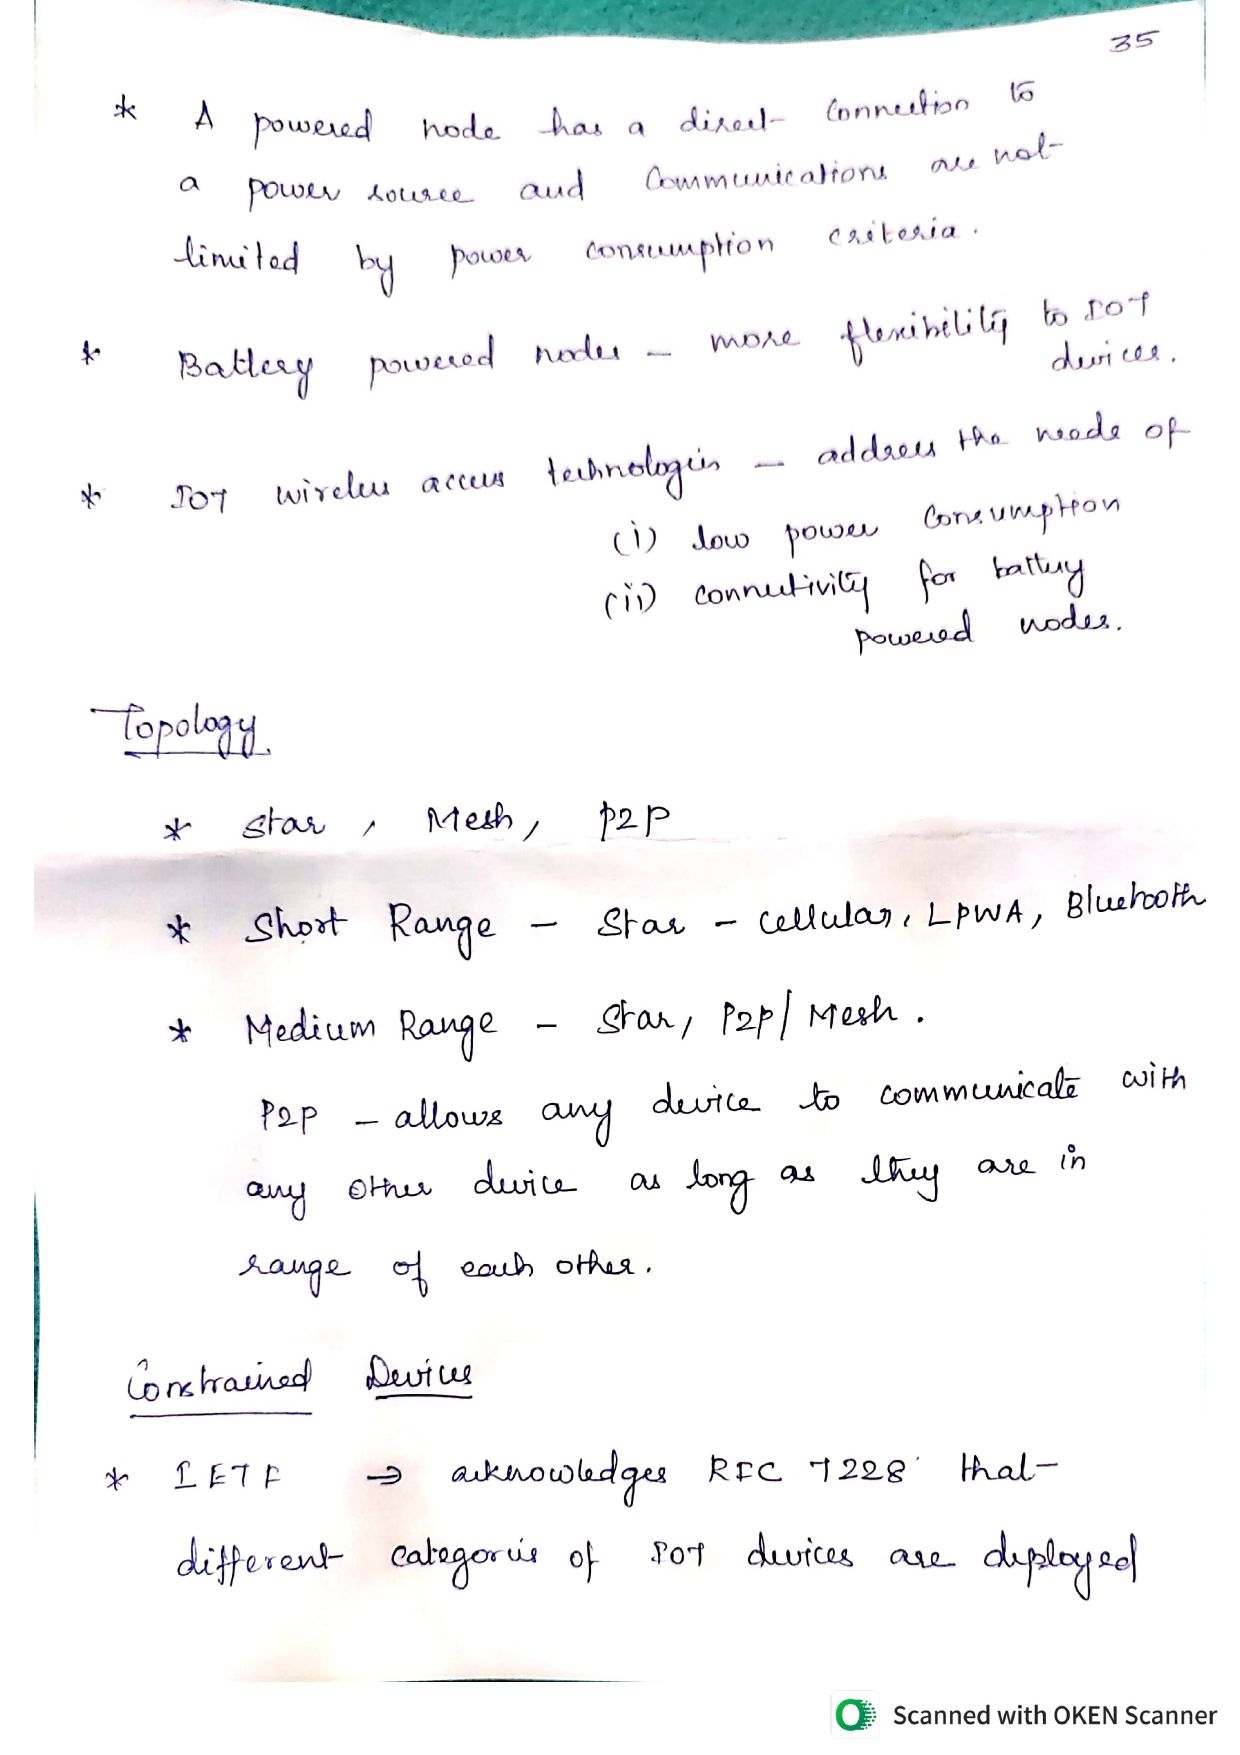 35
* A powered node has a direct connection to
a power source and communications are not
limited by power consumption criteria.
* Battery powered nodes - more flexibility to IOT
devices.
* IOT wireless access technologies - address the needs of
(i) low power consumption
(ii) connectivity for battery
powered nodes.
Topology
* Star, Mesh, P2P
* Short Range - Star - cellular, LPWA, Bluetooth
* Medium Range - Star, P2P/Mesh.
P2P - allows any device to communicate with
any other device as long as they are in
range of each other.
Constrained Devices
* IETF → acknowledges RFC 7228 that
different categories of IOT devices are deployed
Scanned with OKEN Scanner